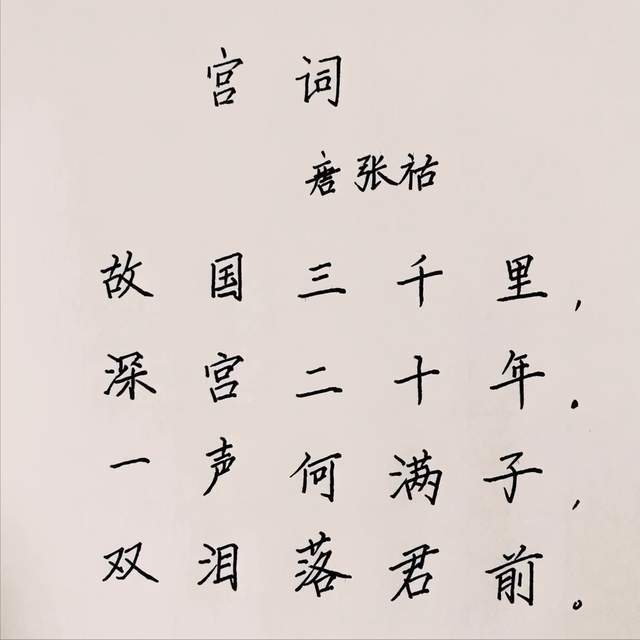 宫词
唐张祜
故国三千里，
深宫二十年。
一声何满子，
双泪落君前。